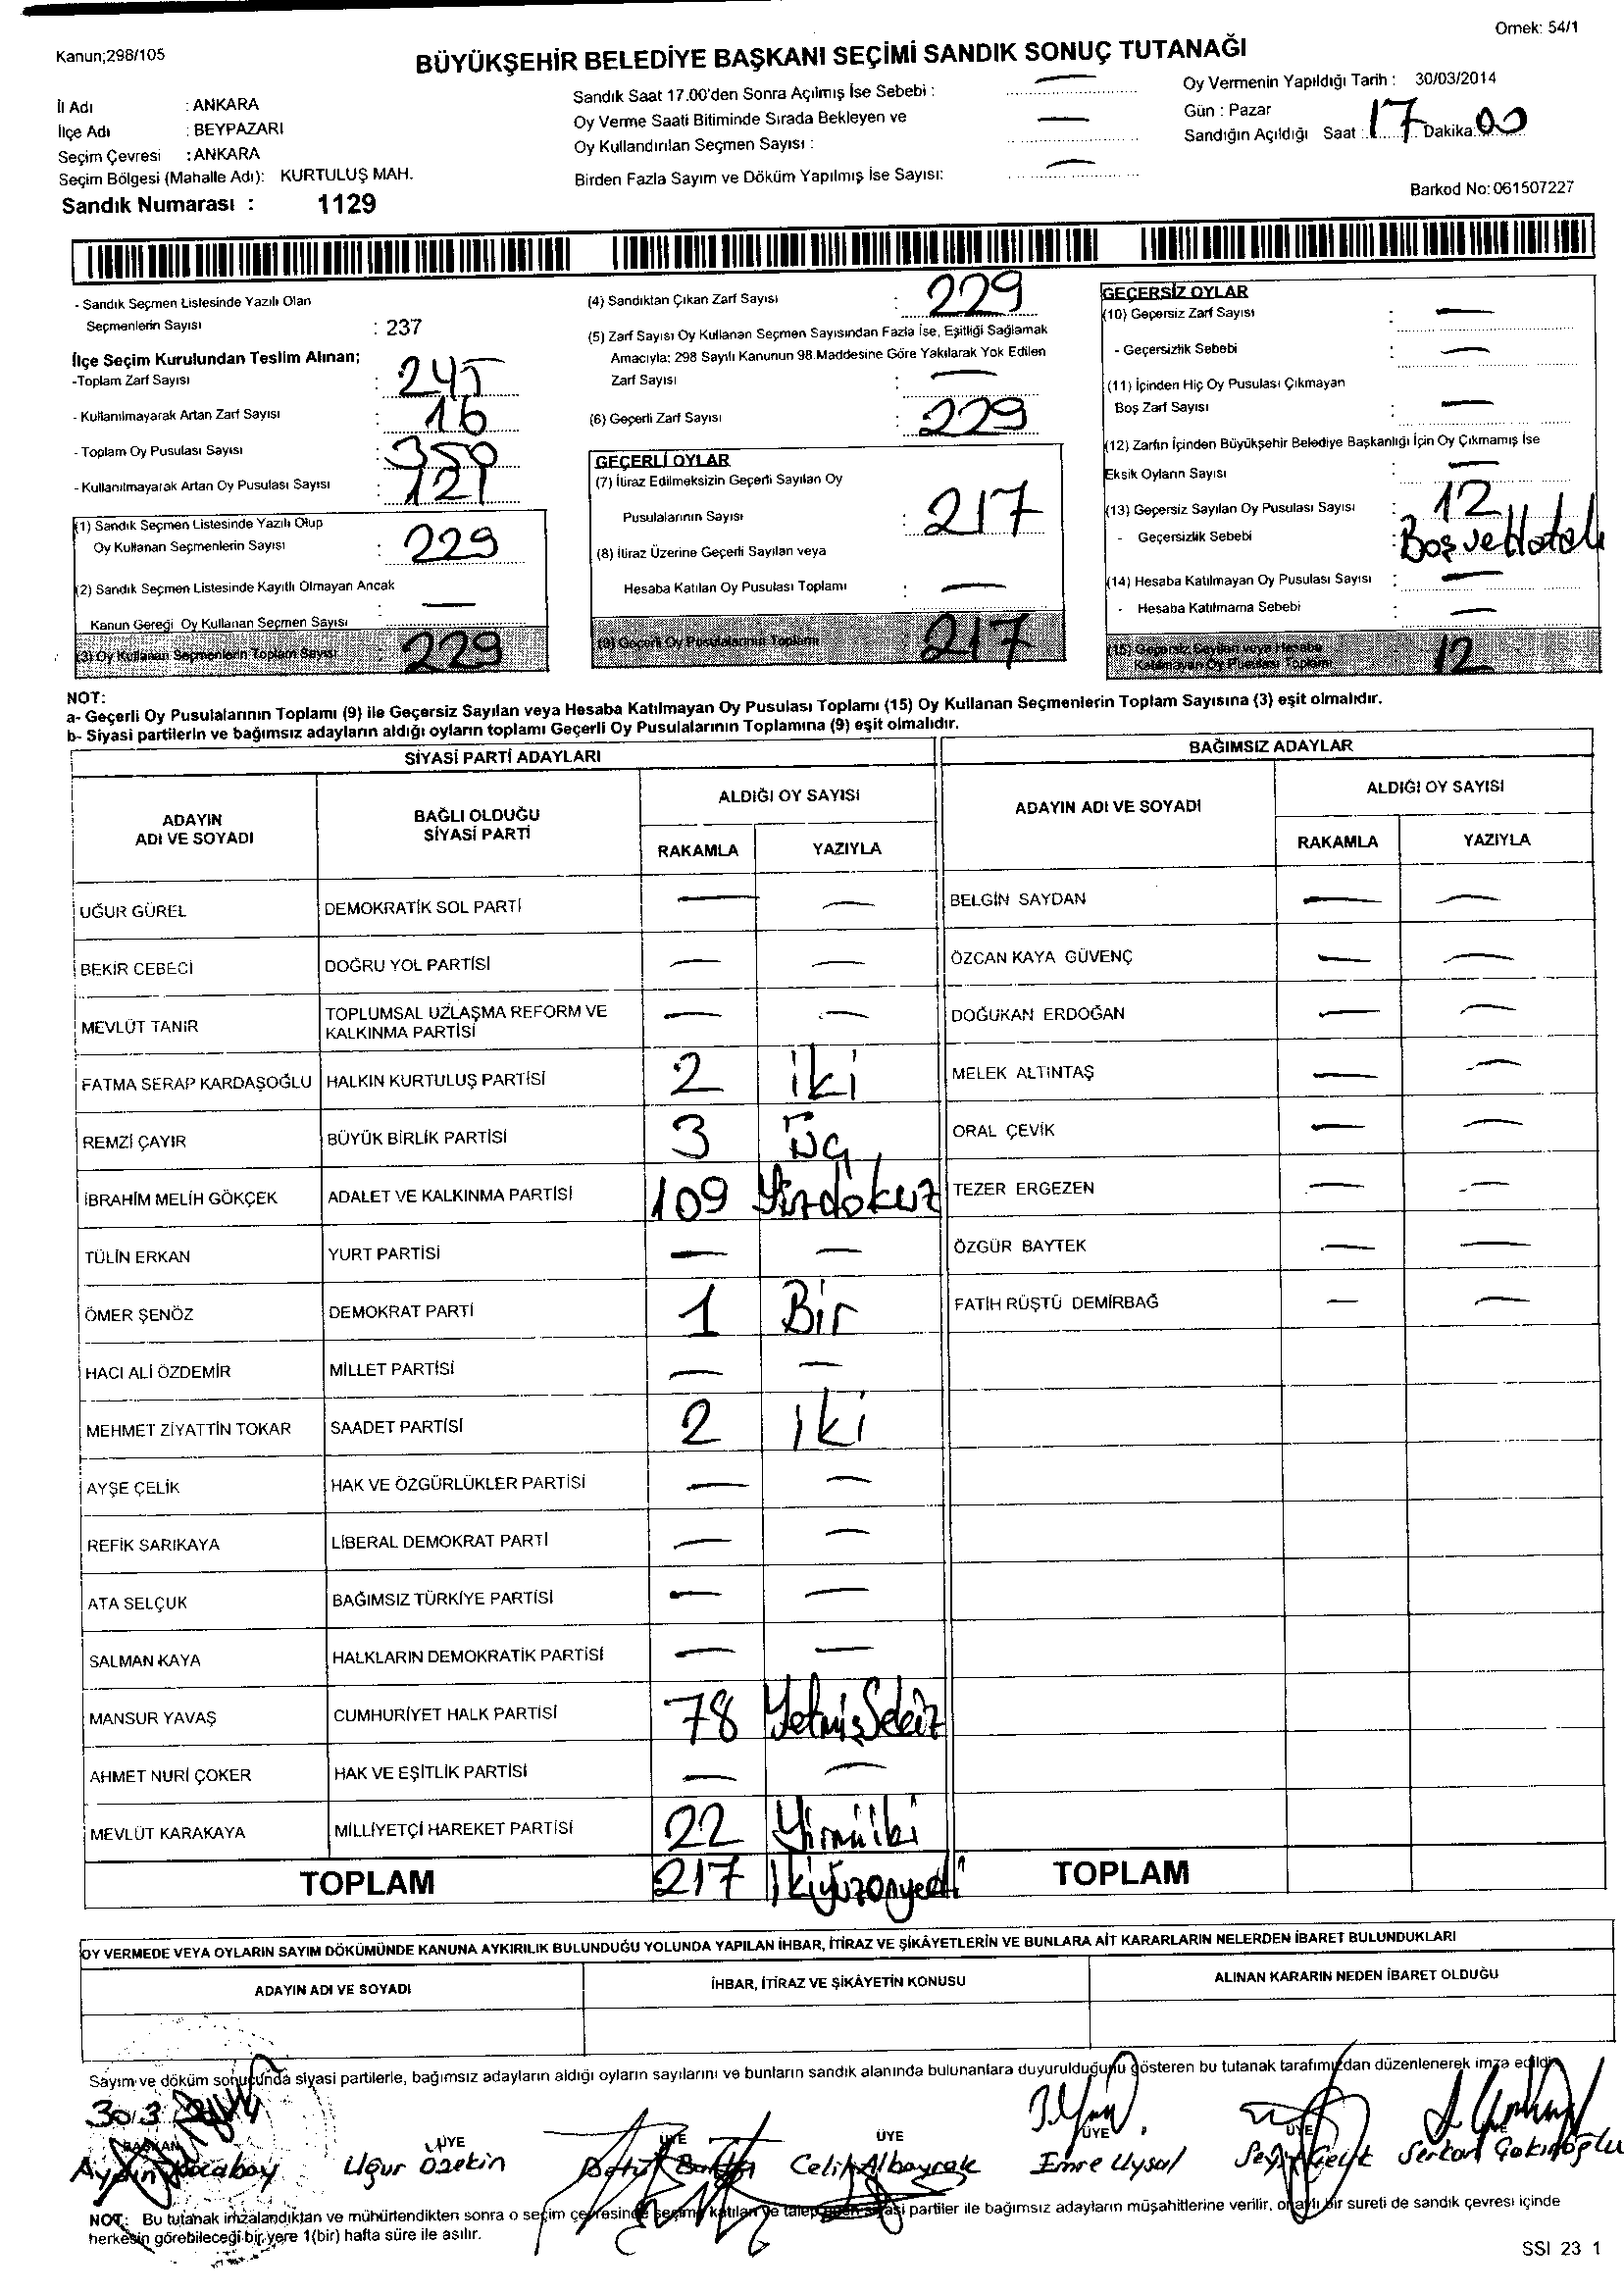 Örnek: 54/1
Kanun;298/105
BÜYÜKŞEHİR BELEDİYE BAŞKANI SEÇİMİ SANDIK SONUÇ TUTANAĞI
İl Adı : ANKARA
İlçe Adı : BEYPAZARI
Seçim Çevresi : ANKARA
Seçim Bölgesi (Mahalle Adı): KURTULUŞ MAH.
Sandık Numarası : 1129
Sandık Saat 17.00'den Sonra Açılmış İse Sebebi : —
Oy Verme Saati Bitiminde Sırada Bekleyen ve
Oy Kullandırılan Seçmen Sayısı : —
Birden Fazla Sayım ve Döküm Yapılmış İse Sayısı: —
Oy Vermenin Yapıldığı Tarih : 30/03/2014
Gün : Pazar
Sandığın Açıldığı Saat : 17 Dakika: 00
Barkod No: 061507227
- Sandık Seçmen Listesinde Yazılı Olan
Seçmenlerin Sayısı : 237
İlçe Seçim Kurulundan Teslim Alınan;
-Toplam Zarf Sayısı : 245
- Kullanılmayarak Artan Zarf Sayısı : 16
- Toplam Oy Pusulası Sayısı : 350
- Kullanılmayarak Artan Oy Pusulası Sayısı : 121
(1) Sandık Seçmen Listesinde Yazılı Olup
Oy Kullanan Seçmenlerin Sayısı : 229
(2) Sandık Seçmen Listesinde Kayıtlı Olmayan Ancak
Kanun Gereği Oy Kullanan Seçmen Sayısı : —
(3) Oy Kullanan Seçmenlerin Toplam Sayısı : 229
(4) Sandıktan Çıkan Zarf Sayısı : 229
(5) Zarf Sayısı Oy Kullanan Seçmen Sayısından Fazla İse, Eşitliği Sağlamak
Amacıyla; 298 Sayılı Kanunun 98.Maddesine Göre Yakılarak Yok Edilen
Zarf Sayısı : —
(6) Geçerli Zarf Sayısı : 229
GEÇERLİ OYLAR
(7) İtiraz Edilmeksizin Geçerli Sayılan Oy
Pusulalarının Sayısı : 217
(8) İtiraz Üzerine Geçerli Sayılan veya
Hesaba Katılan Oy Pusulası Toplamı : —
(9) Geçerli Oy Pusulalarının Toplamı 217
GEÇERSİZ OYLAR
(10) Geçersiz Zarf Sayısı : —
- Geçersizlik Sebebi : —
(11) İçinden Hiç Oy Pusulası Çıkmayan
Boş Zarf Sayısı : —
(12) Zarfın İçinden Büyükşehir Belediye Başkanlığı İçin Oy Çıkmamış İse
Eksik Oyların Sayısı : —
(13) Geçersiz Sayılan Oy Pusulası Sayısı : 12
- Geçersizlik Sebebi : Boş ve Hatalı
(14) Hesaba Katılmayan Oy Pusulası Sayısı : —
- Hesaba Katılmama Sebebi : —
(15) Geçersiz Sayılan veya Hesaba
Katılmayan Oy Pusulası Toplamı 12
NOT:
a- Geçerli Oy Pusulalarının Toplamı (9) ile Geçersiz Sayılan veya Hesaba Katılmayan Oy Pusulası Toplamı (15) Oy Kullanan Seçmenlerin Toplam Sayısına (3) eşit olmalıdır.
b- Siyasi partilerin ve bağımsız adayların aldığı oyların toplamı Geçerli Oy Pusulalarının Toplamına (9) eşit olmalıdır.
SİYASİ PARTİ ADAYLARI
ADAYIN ADI VE SOYADI
BAĞLI OLDUĞU SİYASİ PARTİ
ALDIĞI OY SAYISI
RAKAMLA YAZIYLA
UĞUR GÜREL DEMOKRATİK SOL PARTİ — —
BEKİR CEBECİ DOĞRU YOL PARTİSİ — —
MEVLÜT TANIR TOPLUMSAL UZLAŞMA REFORM VE KALKINMA PARTİSİ — —
FATMA SERAP KARDAŞOĞLU HALKIN KURTULUŞ PARTİSİ 2 iki
REMZİ ÇAYIR BÜYÜK BİRLİK PARTİSİ 3 üç
İBRAHİM MELİH GÖKÇEK ADALET VE KALKINMA PARTİSİ 109 Yüzdokuz
TÜLİN ERKAN YURT PARTİSİ — —
ÖMER ŞENÖZ DEMOKRAT PARTİ 1 Bir
HACI ALİ ÖZDEMİR MİLLET PARTİSİ — —
MEHMET ZİYATTİN TOKAR SAADET PARTİSİ 2 iki
AYŞE ÇELİK HAK VE ÖZGÜRLÜKLER PARTİSİ — —
REFİK SARIKAYA LİBERAL DEMOKRAT PARTİ — —
ATA SELÇUK BAĞIMSIZ TÜRKİYE PARTİSİ — —
SALMAN KAYA HALKLARIN DEMOKRATİK PARTİSİ — —
MANSUR YAVAŞ CUMHURİYET HALK PARTİSİ 78 YetmişSekiz
AHMET NURİ ÇOKER HAK VE EŞİTLİK PARTİSİ — —
MEVLÜT KARAKAYA MİLLİYETÇİ HAREKET PARTİSİ 22 Yirmiiki
TOPLAM 217 ikiyüzonyedi
BAĞIMSIZ ADAYLAR
ADAYIN ADI VE SOYADI
ALDIĞI OY SAYISI
RAKAMLA YAZIYLA
BELGİN SAYDAN — —
ÖZCAN KAYA GÜVENÇ — —
DOĞUKAN ERDOĞAN — —
MELEK ALTINTAŞ — —
ORAL ÇEVİK — —
TEZER ERGEZEN — —
ÖZGÜR BAYTEK — —
FATİH RÜŞTÜ DEMİRBAĞ — —
TOPLAM
OY VERMEDE VEYA OYLARIN SAYIM DÖKÜMÜNDE KANUNA AYKIRILIK BULUNDUĞU YOLUNDA YAPILAN İHBAR, İTİRAZ VE ŞİKÂYETLERİN VE BUNLARA AİT KARARLARIN NELERDEN İBARET BULUNDUKLARI
ADAYIN ADI VE SOYADI
İHBAR, İTİRAZ VE ŞİKÂYETİN KONUSU
ALINAN KARARIN NEDEN İBARET OLDUĞU
Sayım ve döküm sonucunda siyasi partilerle, bağımsız adayların aldığı oyların sayılarını ve bunların sandık alanında bulunanlara duyurulduğunu gösteren bu tutanak tarafımızdan düzenlenerek imza edildi.
30.3
BAŞKAN ÜYE ÜYE ÜYE ÜYE ÜYE
Aydın Kocabay Uğur Özekin Celil Albayrak Emre Uysal Serkan
NOT: Bu tutanak imzalandıktan ve mühürlendikten sonra o seçim çevresinde seçime katılan ve talep eden siyasi partiler ile bağımsız adayların müşahitlerine verilir, onaylı bir sureti de sandık çevresi içinde
herkesin görebileceği bir yere 1(bir) hafta süre ile asılır.
SSI 23 1